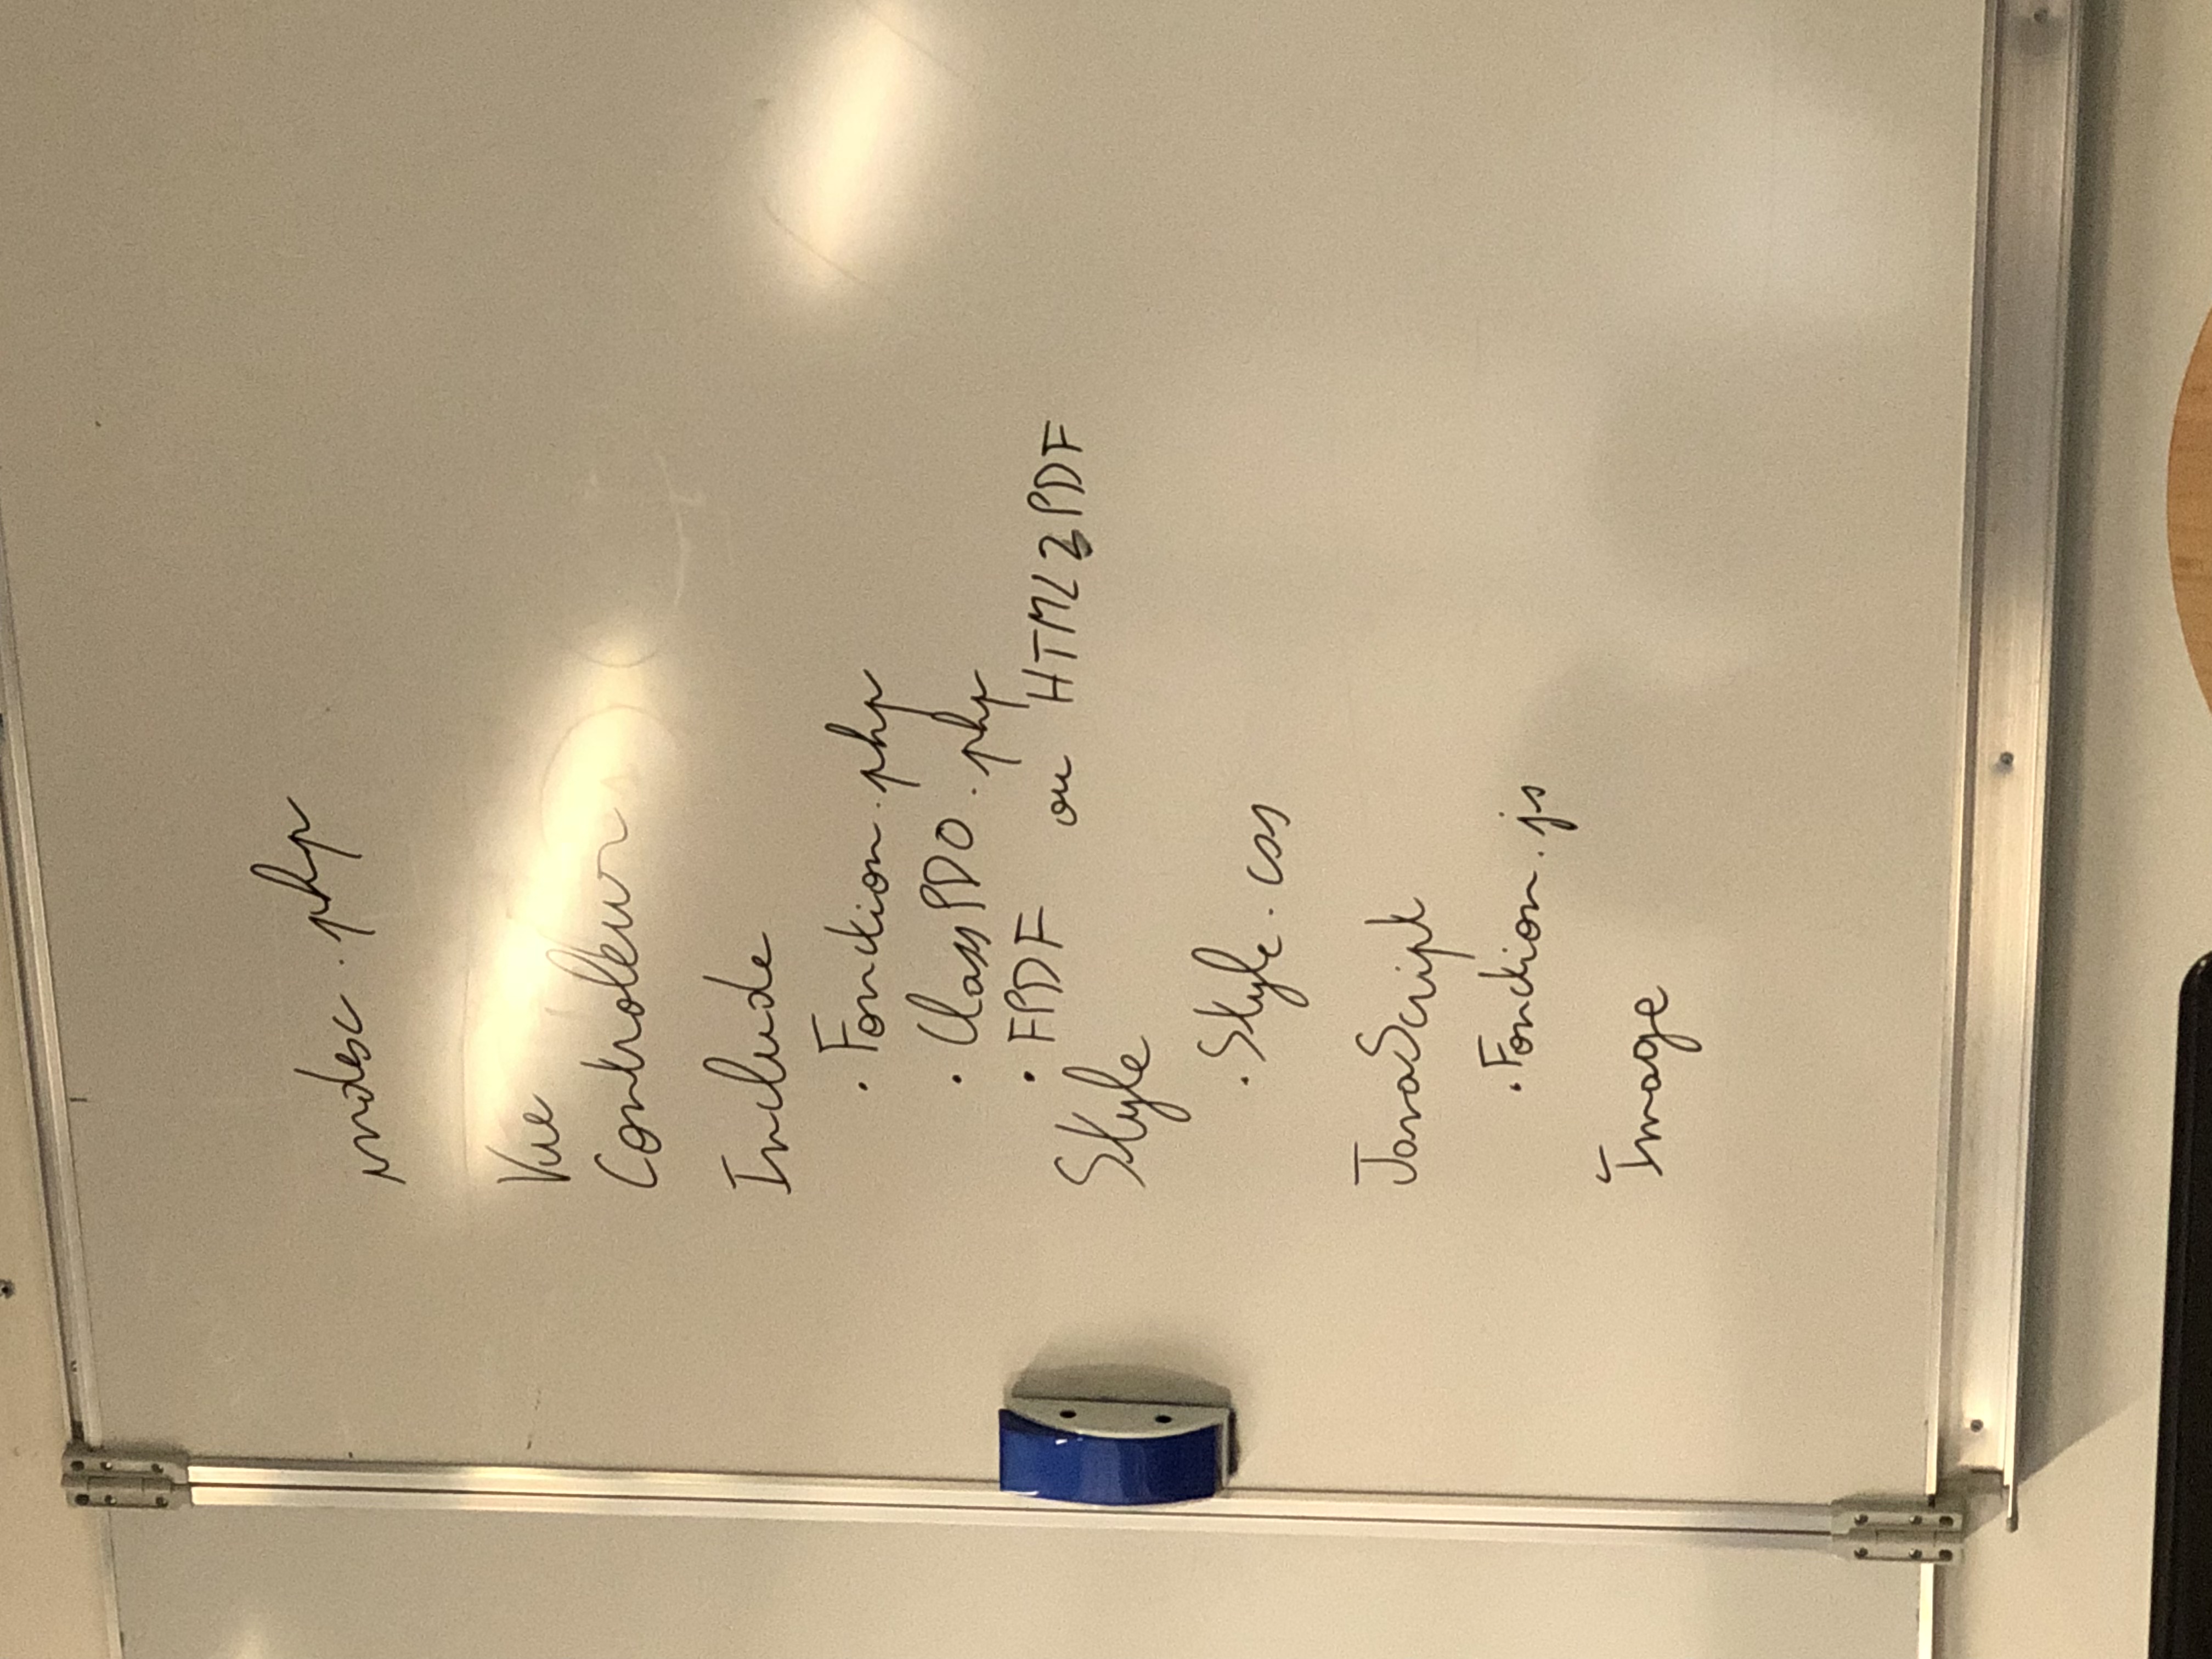 index.php
Vue
Controleur
Include
. Fonction.php
. ClassPDO.php
. FPDF ou HTML2PDF
Style
. Style.css
JavaScript
. Fonction.js
Image